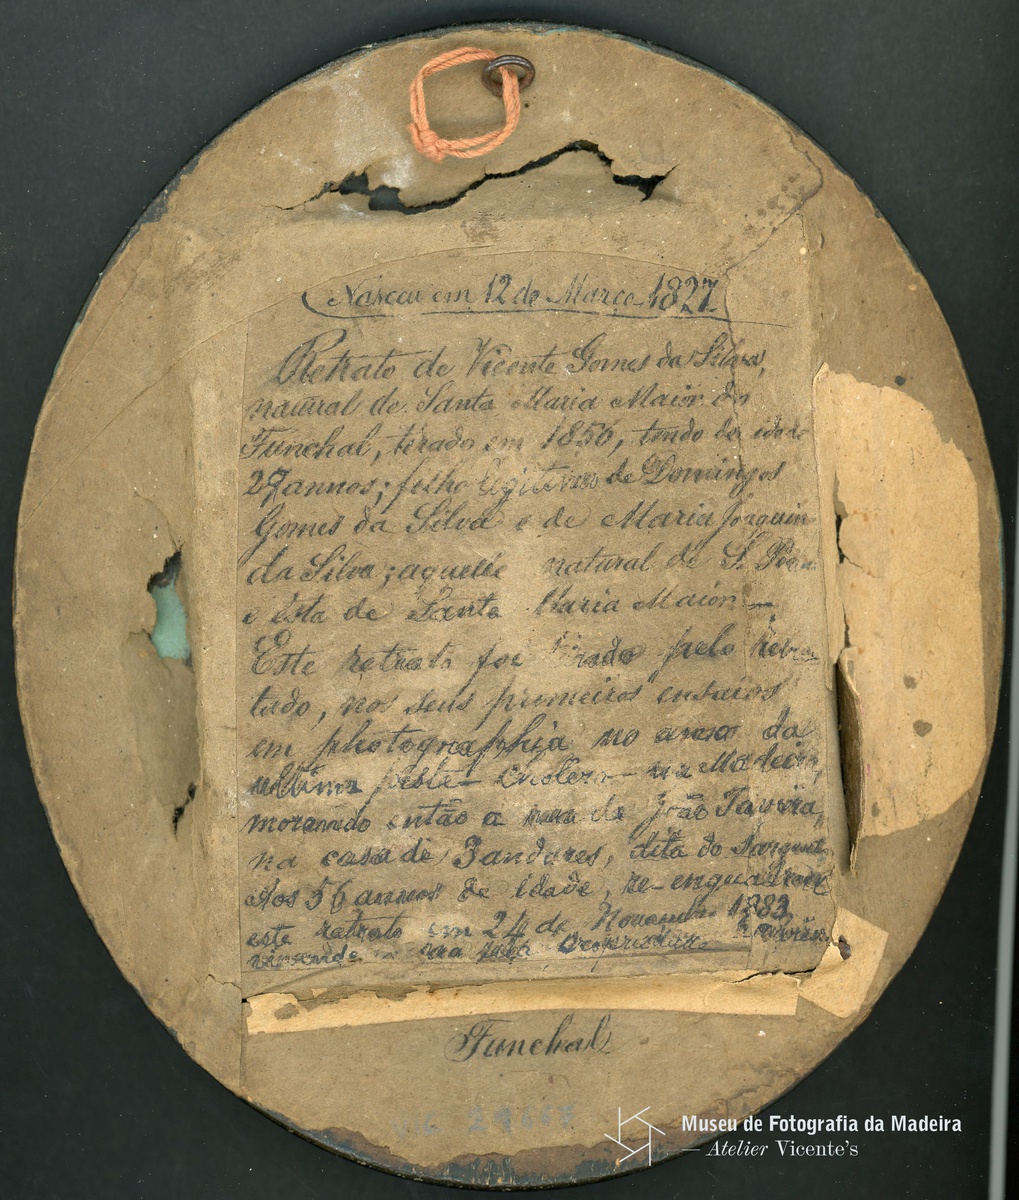 Nasceu em 12 de Março 1827
Retrato de Vicente Gomes da Silva,
natural de Santa Maria Maior do
Funchal, tirado em 1856, tendo de idade
27 annos; filho legitimo de Domingos
Gomes da Silva e de Maria Joaquin
da Silva; aquelle natural de S. Pedro
e esta de Santa Maria Maior
Este retrato foi tirado pelo retra
tado, nos seus primeiros ensaios
em photographia no anno da
ultima peste - cholera - na Madeira,
morando então a rua de João Tavira,
na casa de 3 andares, dita do Sargento
Aos 56 annos de idade, re-enquadrou
este retrato em 24 de Novembro 1883
vivendo na sua
Funchal
Museu de Fotografia da Madeira
— Atelier Vicente's